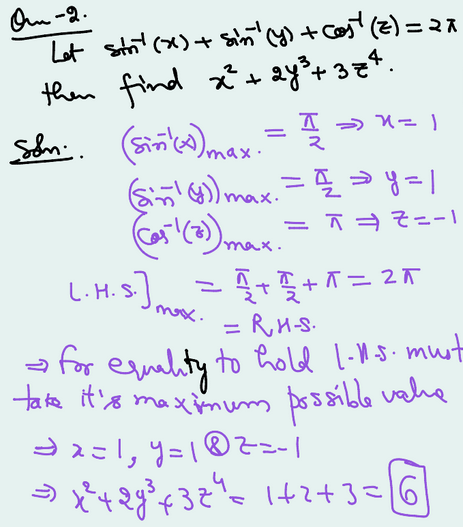 Qun-2.
Let sin⁻¹(x) + sin⁻¹(y) + cos⁻¹(z) = 2π
then find x² + 2y³ + 3z⁴.
Soln. (sin⁻¹(x))max. = π/2 ⇒ x = 1
(sin⁻¹(y))max. = π/2 ⇒ y = 1
(cos⁻¹(z))max. = π ⇒ z = -1
L.H.S.]max. = π/2 + π/2 + π = 2π
= R.H.S.
⇒ for equality to hold L.H.S. must
take it's maximum possible value
⇒ x = 1, y = 1 & z = -1
⇒ x² + 2y³ + 3z⁴ = 1+2+3 = 6